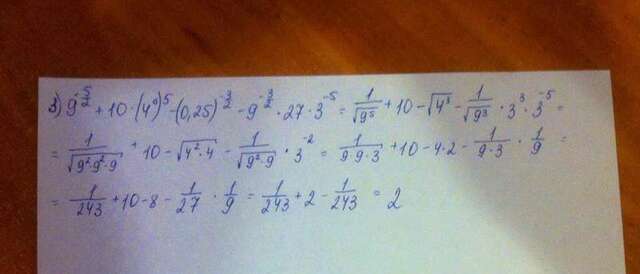 3) 9^{-5/2} + 10 · (4^0)^5 - (0,25)^{-3/2} - 9^{-3/2} · 27 · 3^{-5} = 1/√9^5 + 10 - √4^3 - 1/√9^3 · 3^3 · 3^{-5} =
= 1/√9^2·9^2·9 + 10 - √4^2·4 - 1/√9^2·9 · 3^{-2} = 1/9·9·3 + 10 - 4·2 - 1/9·3 · 1/9 =
= 1/243 + 10 - 8 - 1/27 · 1/9 = 1/243 + 2 - 1/243 = 2